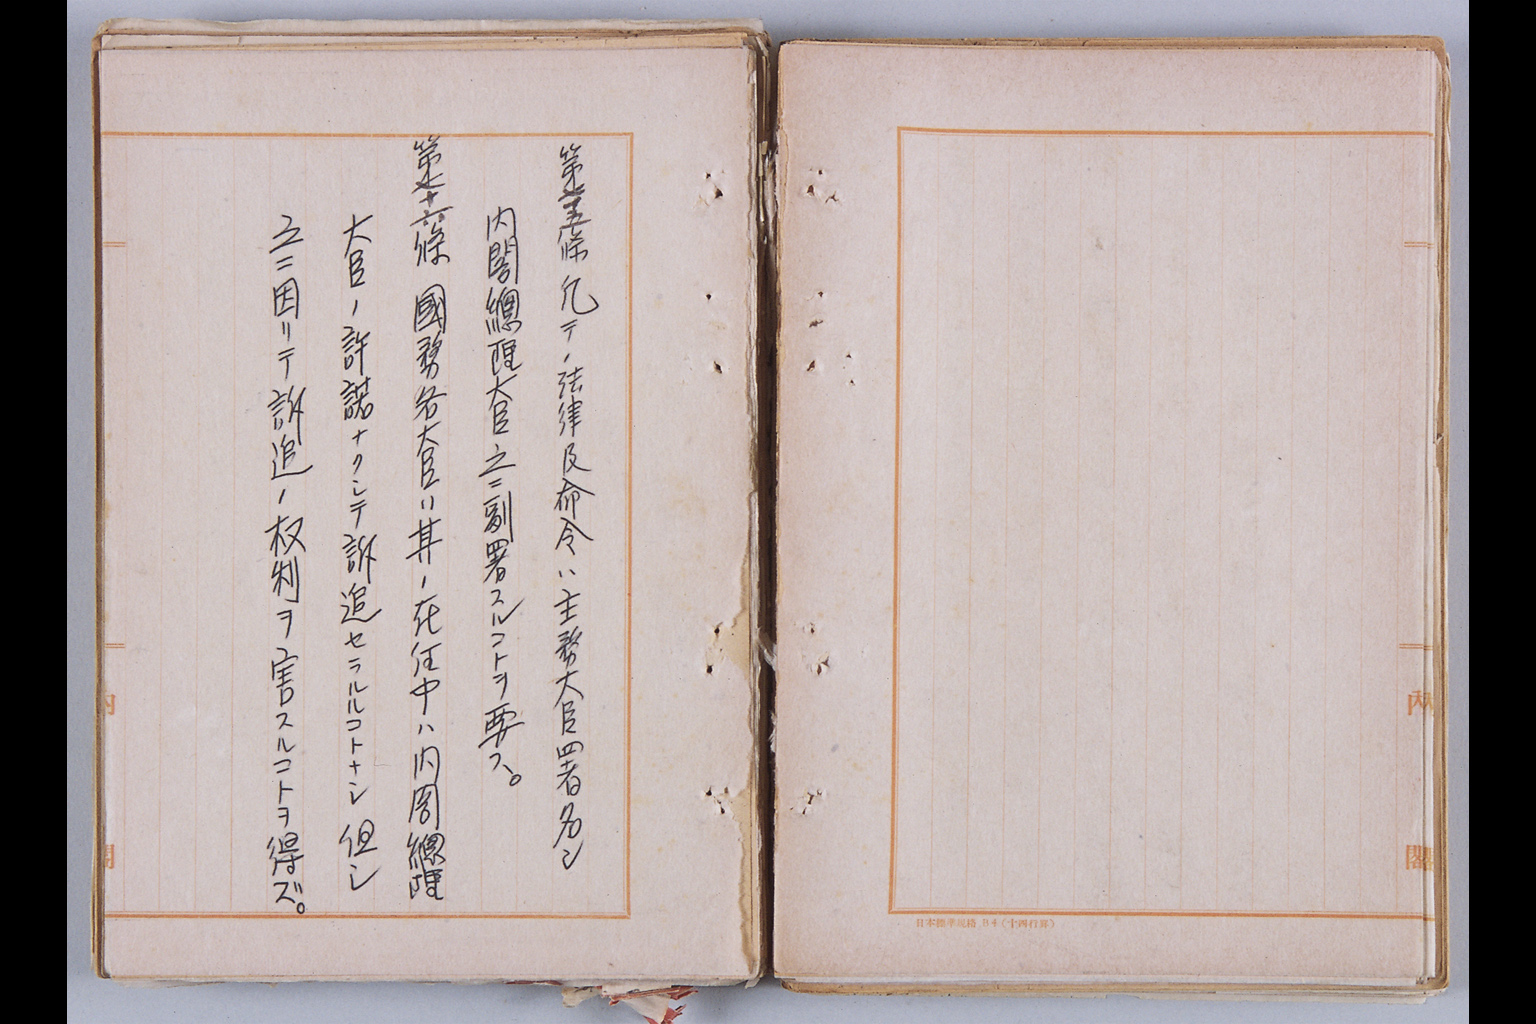 第七十五條 凡テノ法律及命令ハ主務大臣署名シ
内閣總理大臣之ニ副署スルコトヲ要ス。
第七十六條 國務各大臣ハ其ノ在任中ハ内閣總理
大臣ノ許諾ナクシテ訴追セラルルコトナシ 但シ
之ニ因リテ訴追ノ权利ヲ害スルコトヲ得ズ。
内閣
内閣
日本標準規格 B4(十四行罫)